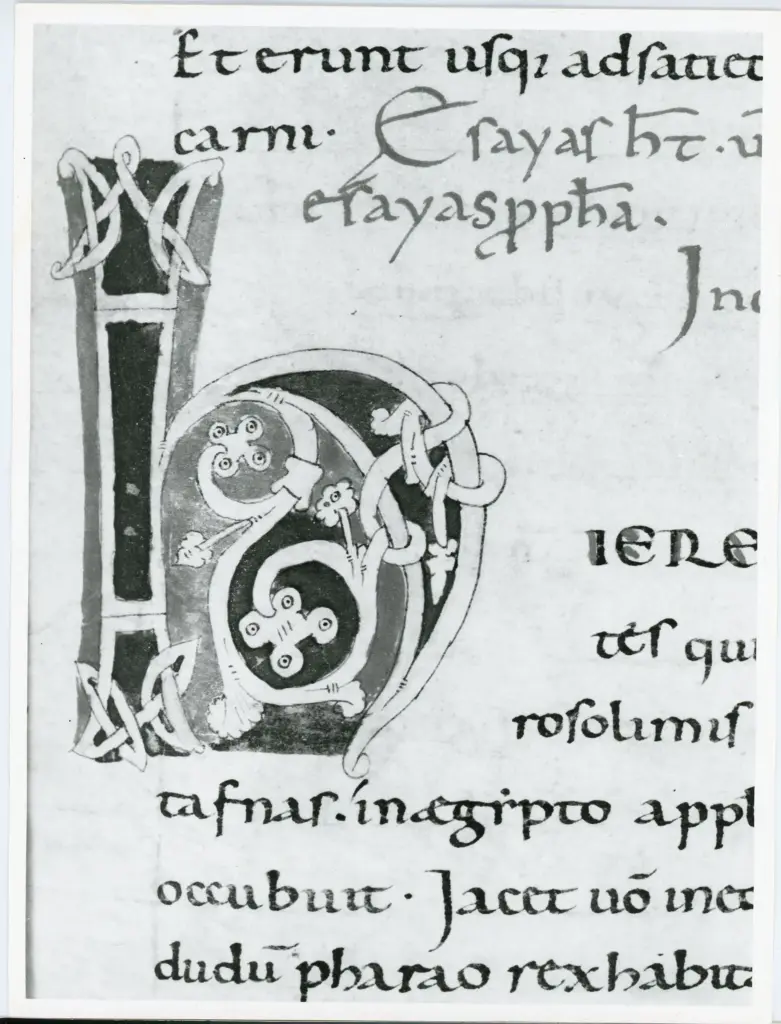 Et erunt uſqꝫ adſatiet
carni· Eſayaſ hēt·
eſayaS ꝓpħa.
Inc
h IERE
teſ qui
roſolimiſ
tafnaſ. inægipto appl
occubuit· Jacet uō inet
dudū pharao rex habita